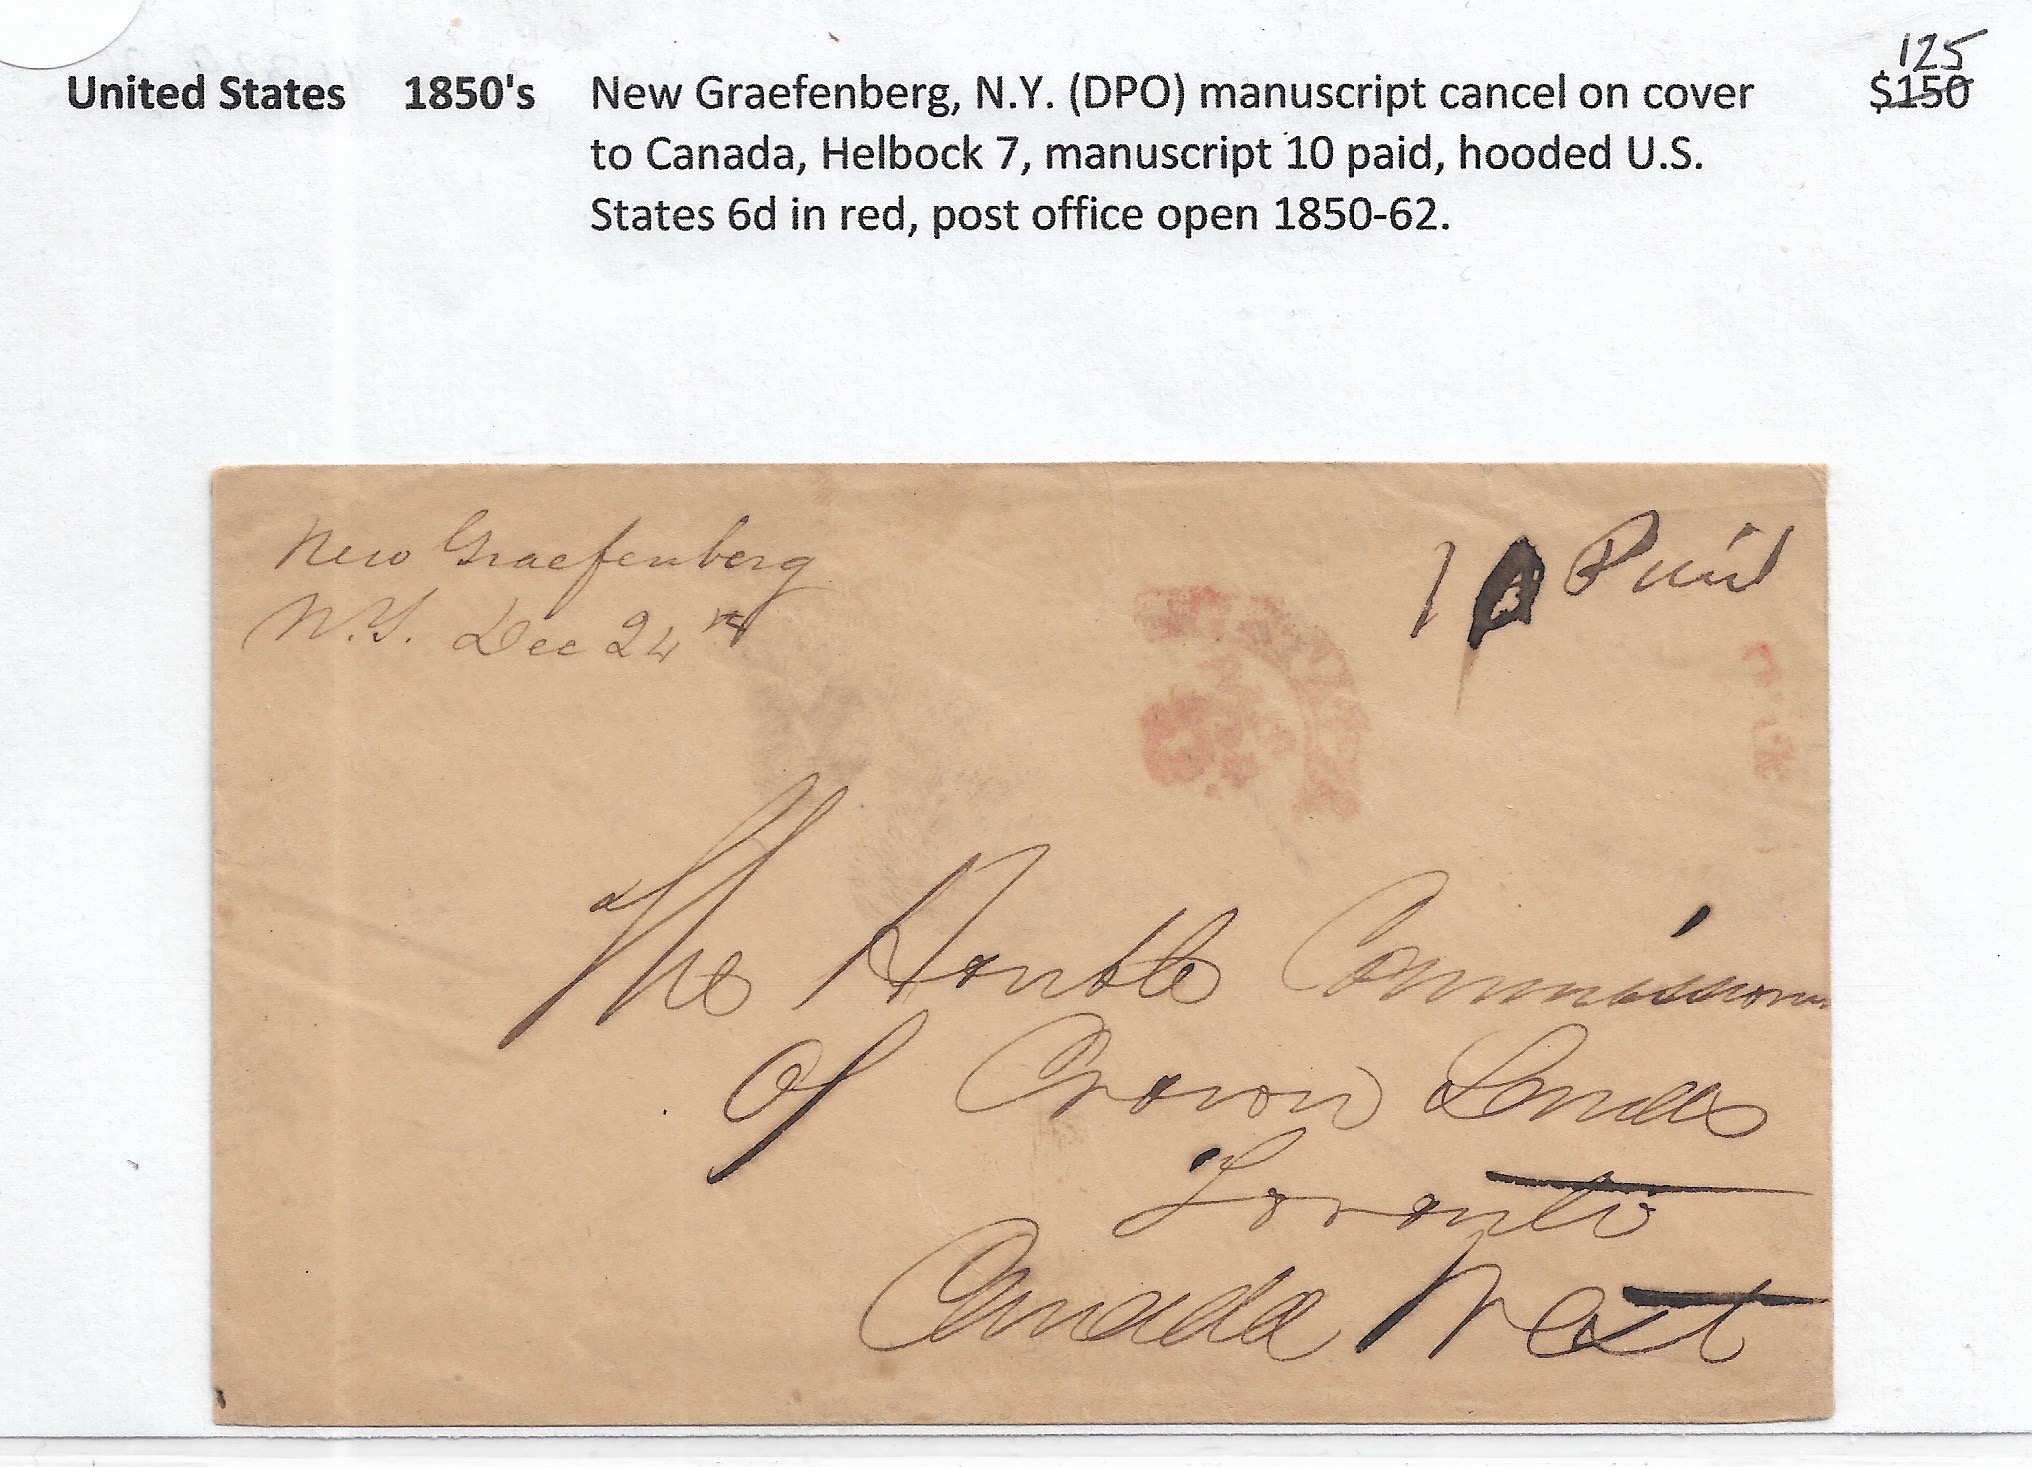 125
United States 1850's New Graefenberg, N.Y. (DPO) manuscript cancel on cover $150
to Canada, Helbock 7, manuscript 10 paid, hooded U.S.
States 6d in red, post office open 1850-62.
New Graefenberg
N.Y. Dec 24th
10 Paid
The Honble Commissioner
of Crown Lands
Toronto
Canada West